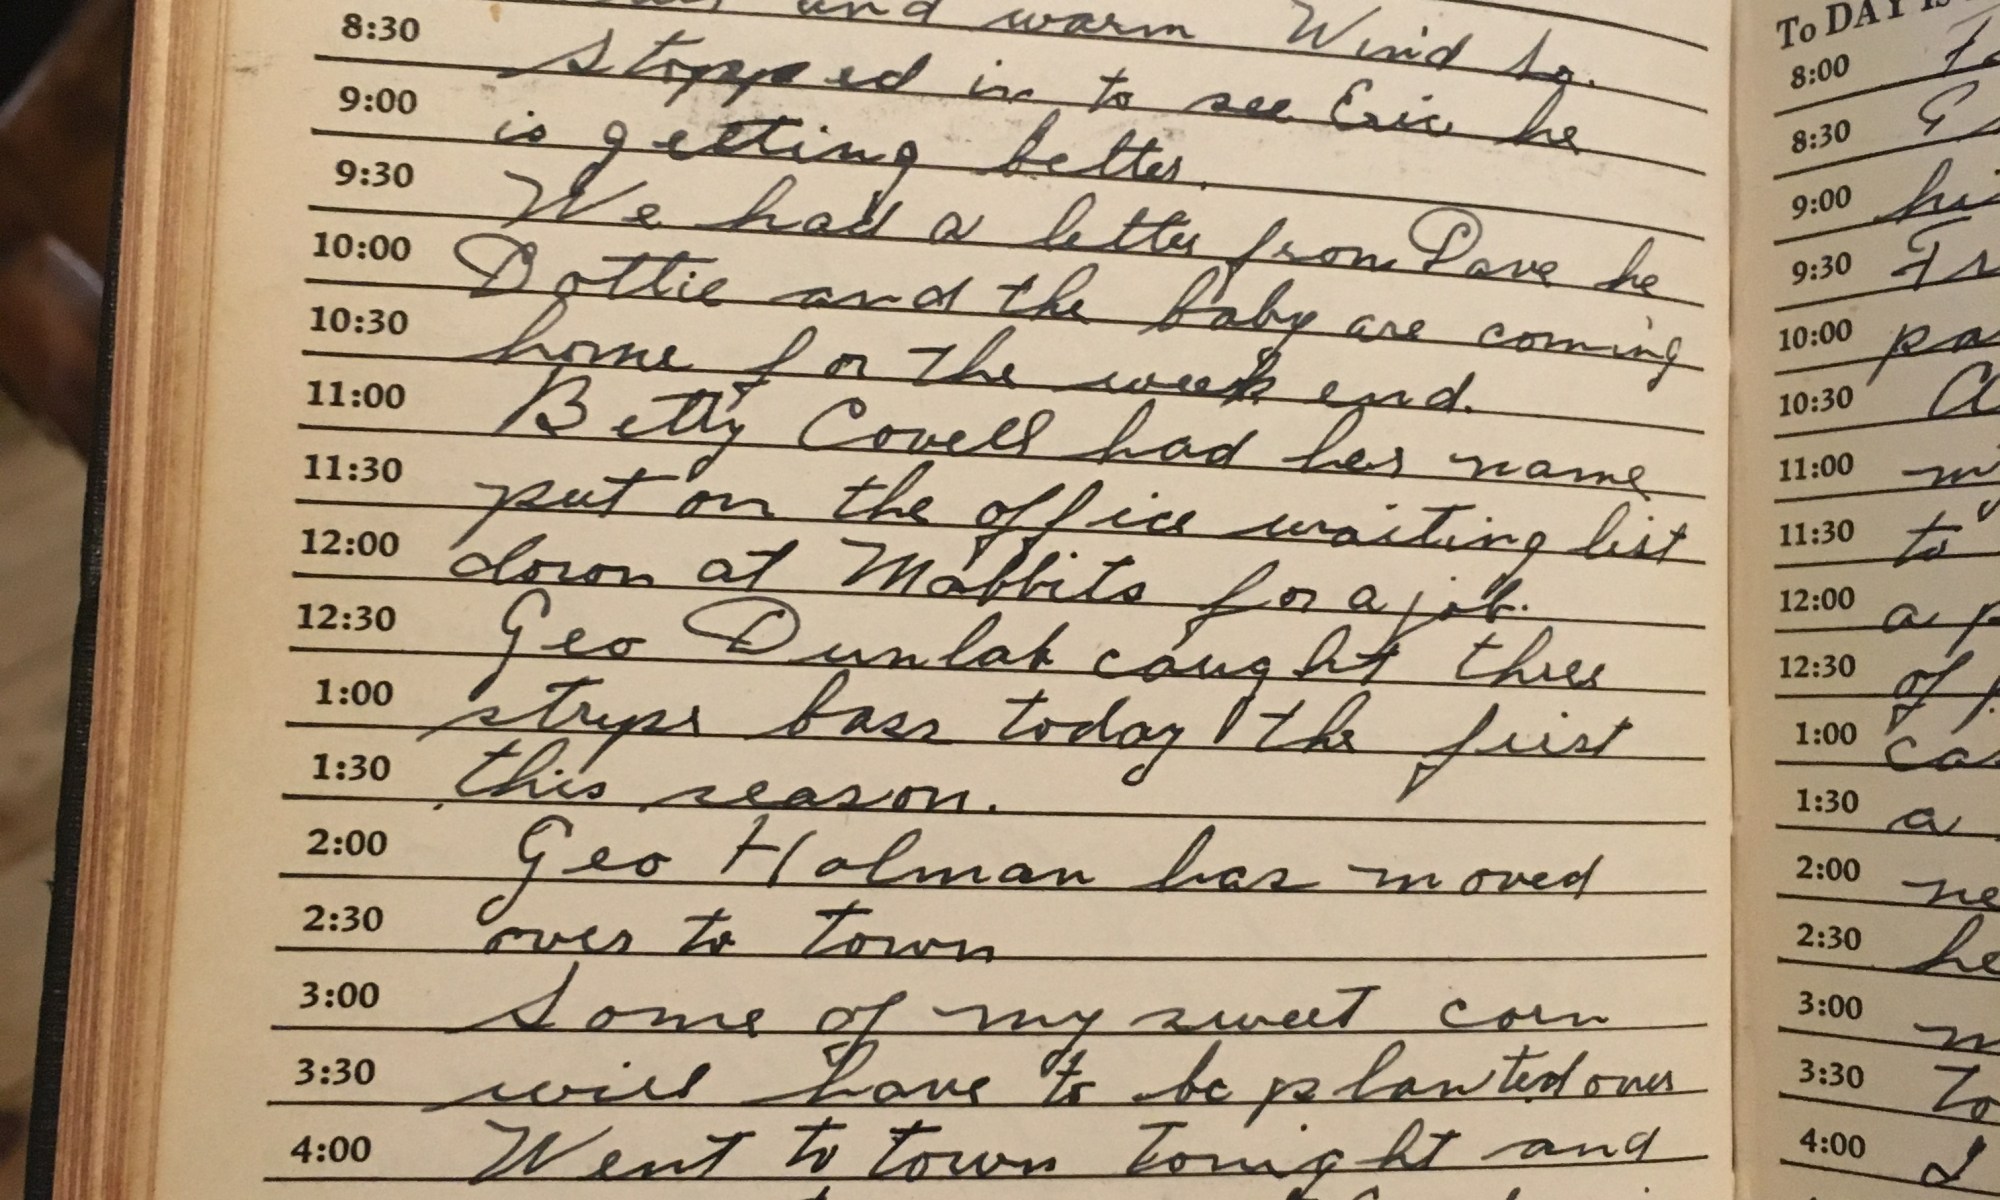 and warm Wind So.
8:30 Stopped in to see Eric he
9:00 is getting better.
9:30 We had a letter from Dave he
10:00 Dottie and the baby are coming
10:30 home for the week end.
11:00 Betty Covell had her name
11:30 put on the office waiting list
12:00 down at Mabbits for a job.
12:30 Geo Dunlab caught three
1:00 stripe bass today the first
1:30 this season.
2:00 Geo Holman has moved
2:30 over to town
3:00 Some of my sweet corn
3:30 will have to be planted over
4:00 Went to town tonight and
To DAY IS
8:00
8:30
9:00
9:30
10:00
10:30
11:00
11:30 to
12:00 a
12:30 of
1:00
1:30 a
2:00
2:30
3:00
3:30
4:00